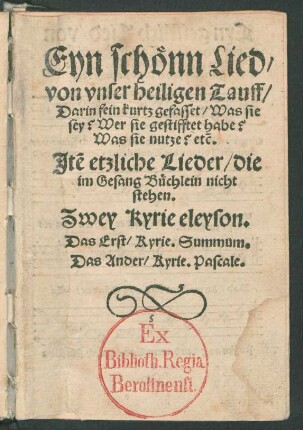 Eyn schönn Lied/
von vnser heiligen Tauff/
Darin fein kurtz gefasset/ Was sie
sey? Wer sie gestifftet habe?
Was sie nutze? etc̄.
Itē etzliche Lieder/ die
im Gesang Büchlein nicht
stehen.
Zwey Kyrie eleyson.
Das Erst/ Kyrie. Summum.
Das Ander/ Kyrie. Pascale.
Ex
Biblioth. Regia
Berolinenſi.